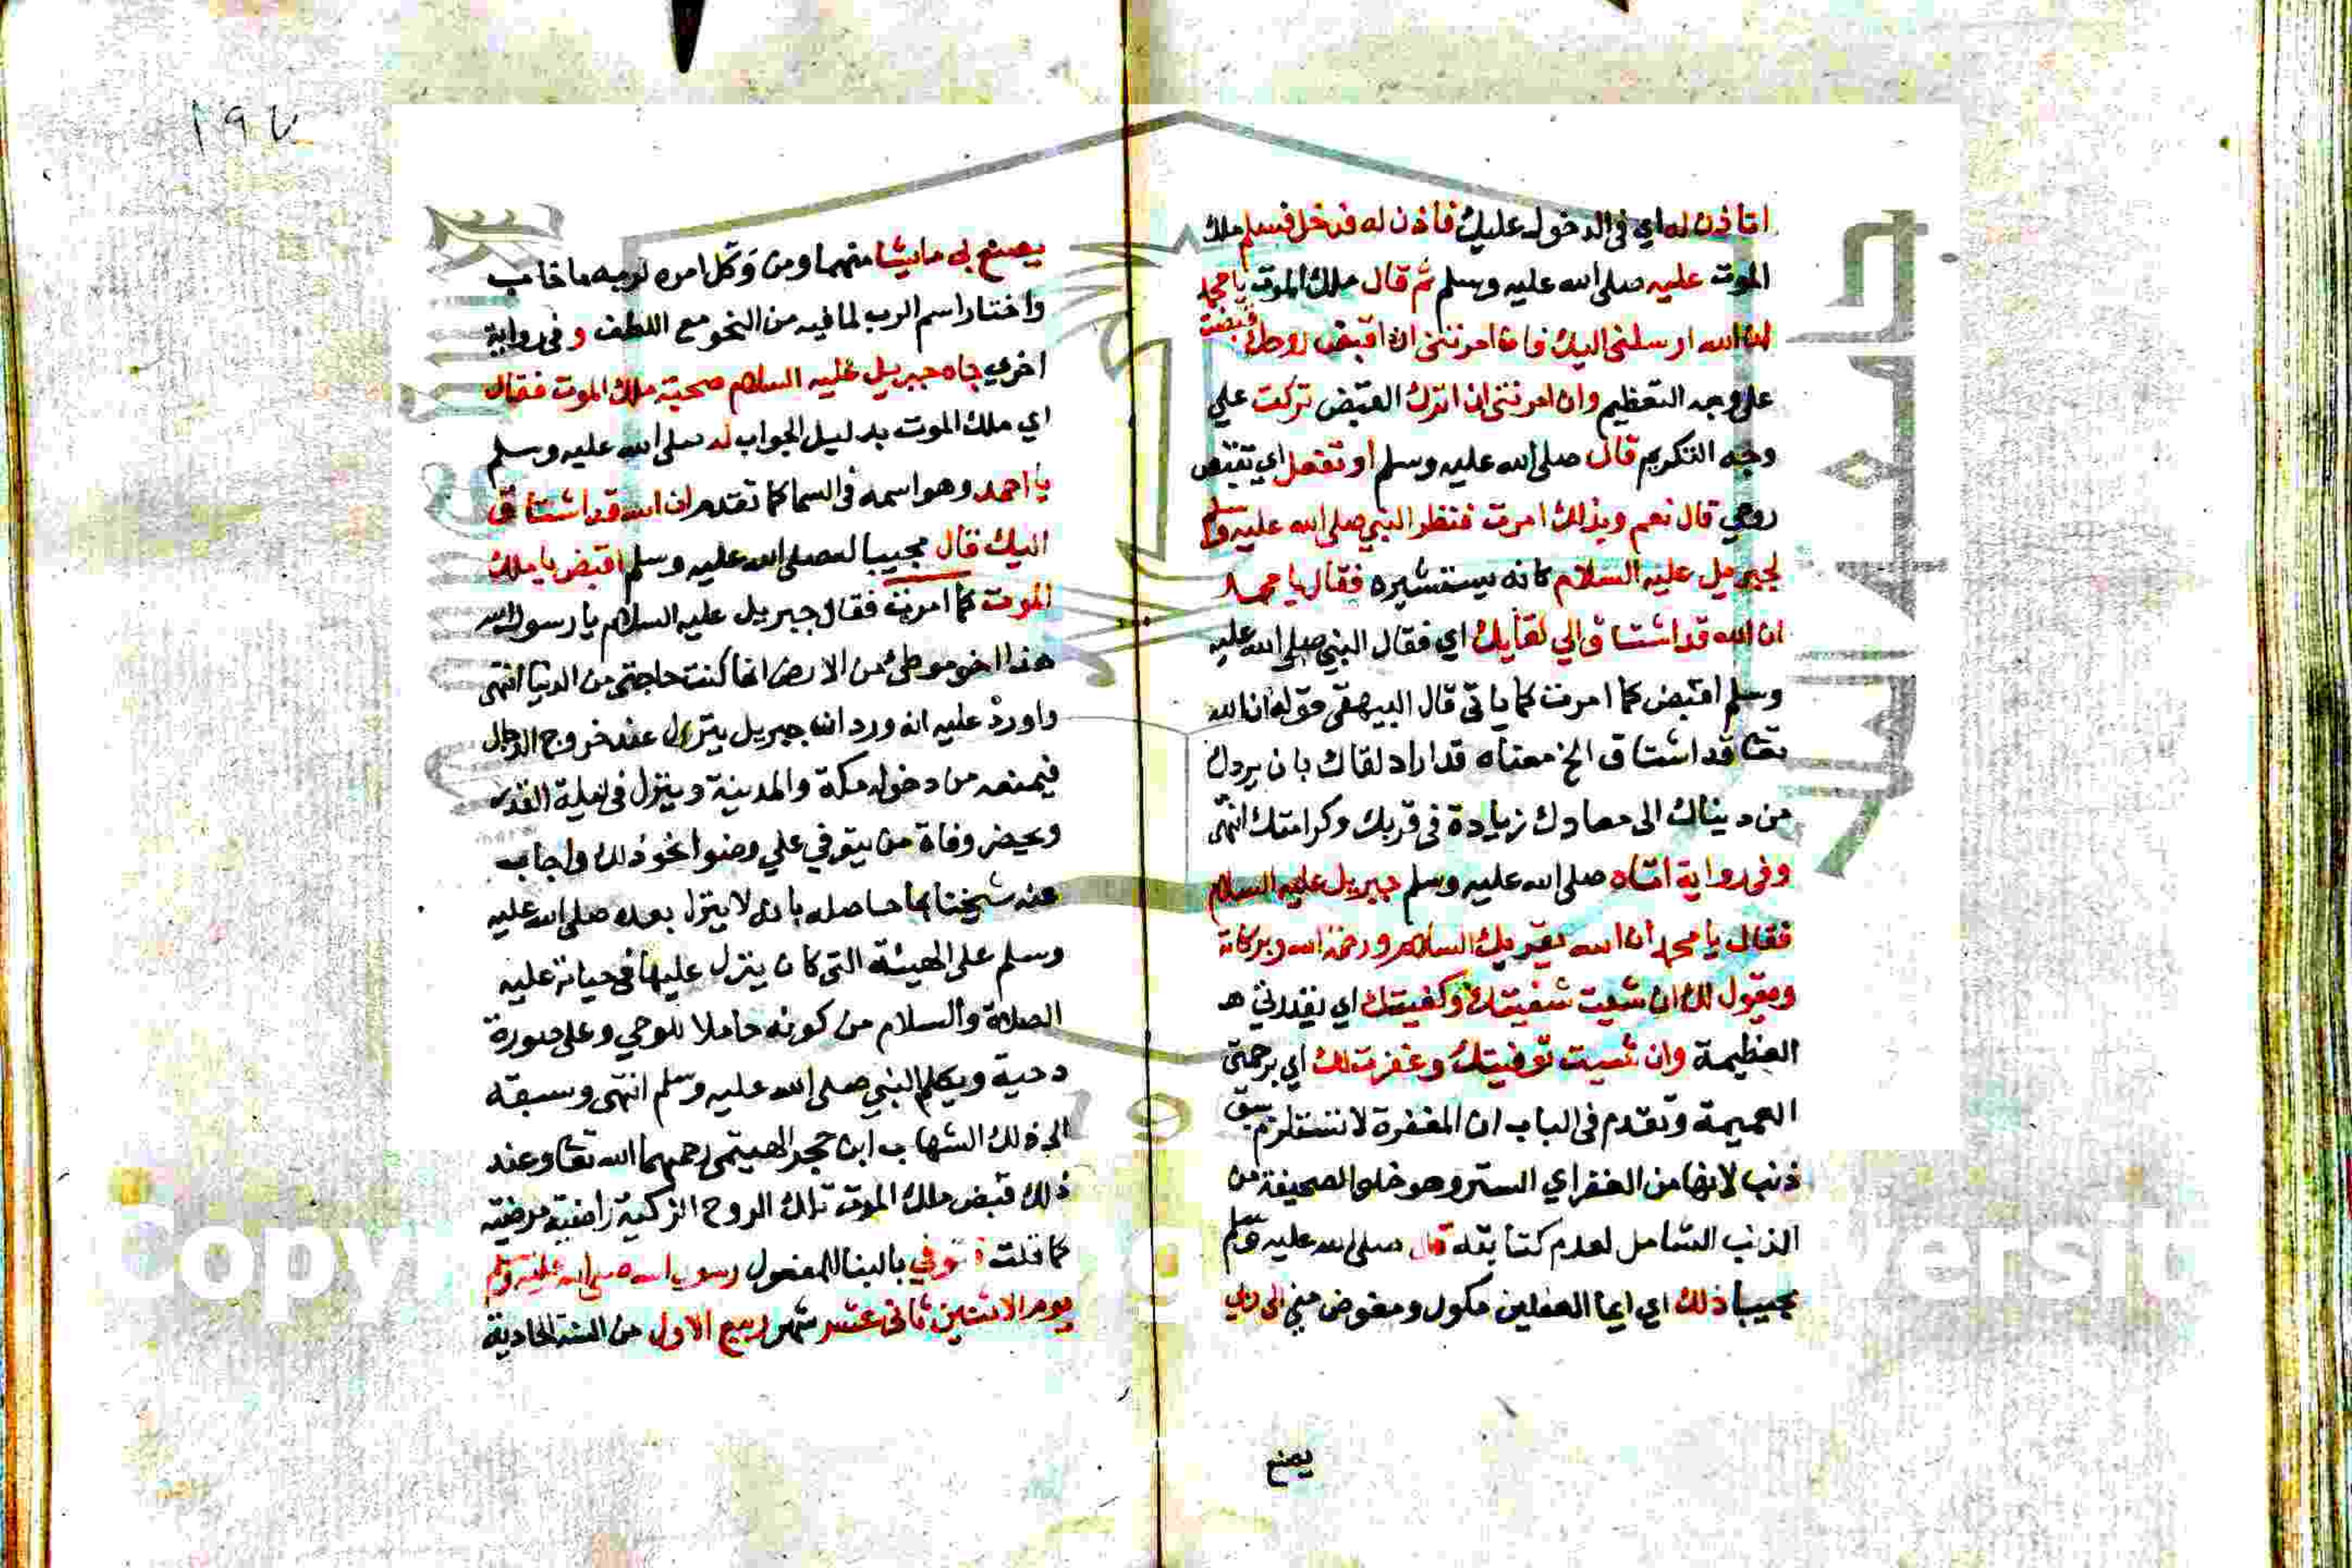 اتاذن له اي في الدخول عليك فأذن له فدخل فسلم ملك
الموت عليه صلى الله عليه وسلم ثم قال ملك الموت يا محمد
ان الله ارسلني اليك فان امرتني ان اقبض روحك قبضت
على وجه التعظيم وان امرتني ان اترك القبض تركت علي
وجه التكريم قال صلى الله عليه وسلم او تفعل اي تقبض
روحي قال نعم وبذلك امرت فنظر النبي صلى الله عليه وسلم
لجبريل عليه السلام كانه يستشيره فقال يا محمد
ان الله قد اشتاق الي لقايك اي فقال النبي صلى الله عليه
وسلم اقبض كما امرت كما ياتي قال البيهقي قوله ان الله
تعا قد اشتاق الخ معناه قد اراد لقاك بان يردك
من دنياك الى معادك زيادة في قربك وكرامتك انتهى
وفي رواية اتاه صلى الله عليه وسلم جبريل عليه السلام
فقال يا محمد ان الله يقريك السلام ورحمة الله وبركاته
ويقول لك ان شيت شفيتك وكفيتك اي بقدرتي
العظيمة وان شيت توفيتك وغفرت لك اي برحمتي
العميمة وتقدم في الباب ان المغفرة لا تستلزم سبق
ذنب لانها من الغفر اي الستر وهو خلو الصحيفة من
الذنب الشامل لعدم كتابته قال صلى الله عليه وسلم
مجيبا ذلك اي ايما الفعلين مكول ومفوض مني الى ربي
يصنع
١٩٧
يصنع بي ما يشا منهما ومن وكل امره لربه ما خاب
واختار اسم الرب لما فيه من النحو مع اللطف وفي رواية
اخري جاه جبريل عليه السلام صحبة ملك الموت فقال
اي ملك الموت بدليل الجواب له صلى الله عليه وسلم
يا احمد وهو اسمه في السما كما تقدم ان الله قد اشتاق
اليك قال مجيبا له صلى الله عليه وسلم اقبض يا ملك
الموت كما امرت فقال جبريل عليه السلام يا رسول الله
هذا اخر موطئ من الارض انما كنت حاجتي من الدنيا انتهى
واورد عليه انه ورد ان جبريل ينزل عند خروج الدجال
فيمنعه من دخول مكة والمدينة وينزل في ليلة القدر
ويحضر وفاة من يتوفي علي وضوا نحو ذلك واجاب
عنه شيخنا بما حاصله بان لا ينزل بعده صلى الله عليه
وسلم على الهيئة التي كان ينزل عليها في حياته عليه
الصلاة والسلام من كونه حاملا للوحي وعلى صورة
دحية ويكلم النبي صلى الله عليه وسلم انتهى وسبقه
الى ذلك الشهاب ابن حجر الهيتمي رحمهما الله تعا وعند
ذلك قبض ملك الموت تلك الروح الزكية راضية مرضية
كما قلت فتوفي بالبنا للمفعول رسول الله صلى الله عليه وسلم
يوم الاثنين ثاني عشر شهر ربيع الاول من السنة الحادية